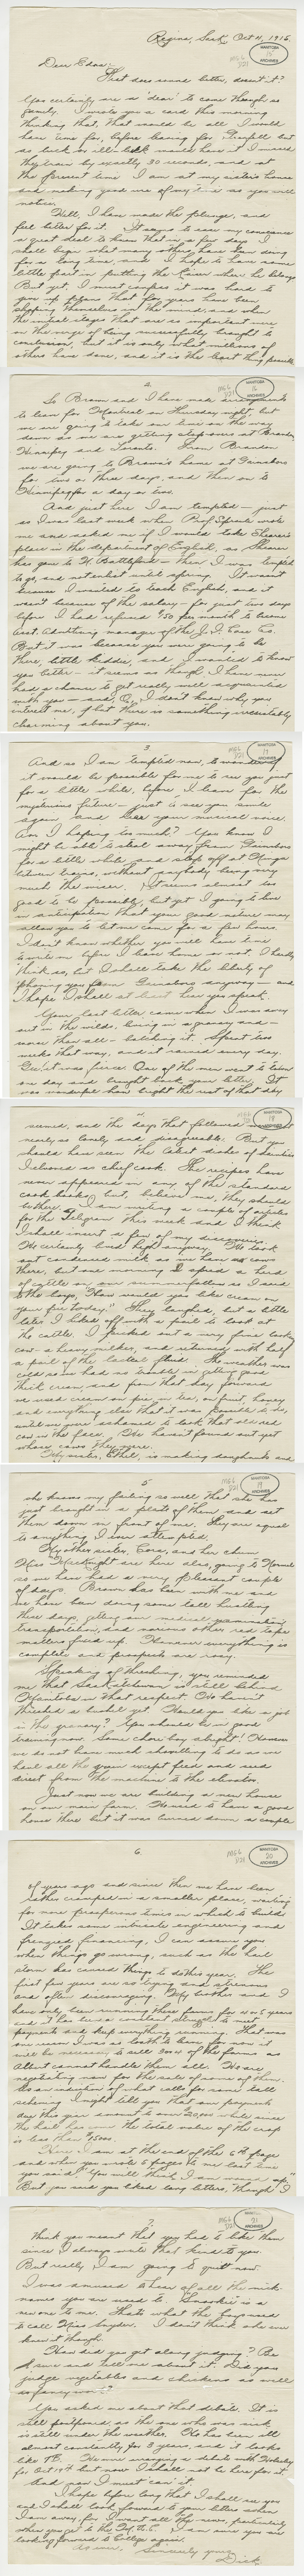 Regina, Sask, Oct 11, 1915.
MANITOBA
15
ARCHIVES
MG6
Dear Edna:-
That does sound better, doesn't it?
You certainly are a "dear" to come through so
I wrote you a card this morning
thinking that that would be all I would
have time for, before leaving for but
as luck or ill-luck would have it I missed
the train by exactly 30 seconds, and at
the present time I am at my sister's home
and making good use of my time as you will
notice.
Well, I have made the plunge, and
feel better for it. It seems to ease my conscience
a great deal to know that in a few days I
shall begin what many others have been doing
for a long time, and I hope to have some
little part in putting the Kaiser where he belongs
But yet, I must confess it was hard to
give up plans that for years have been
shaping themselves in the mind, and when
the initial stages that are so important were
on the verge of being successfully brought to
conclusion, but it is only what millions of
others have done, and it is the least thing possible
2.
MG6
MANITOBA
16
ARCHIVES
So Brown and I have made arrangements
to leave for Montreal on Thursday night, but
we are going to take our time on the way
down as we are getting stopovers at Brandon,
Winnipeg and Toronto. From Brandon
we are going to Brown's home at
for two or three days, and then on to
Winnipeg for a day or two.
And just here I am tempted - just
as I was last week when Prof. Sproule wrote
me and asked me if I would take Shearer's
place in the department of English, as Shearer
has gone to N. Battleford - then I was tempted
to go, and not enlist until spring. It wasn't
because I wanted to teach English, and it
wasn't because of the salary - for just two days
before I had refused $150 per month to become
asst. advertising manager of the J.I. Case Co.
But it was because you were going to be
there, little kiddie, and I wanted to know
you better - it seems as though I have never
had a chance to get really well acquainted
with you - and O, I don't know why you
interest me, but there is something irresistably
charming about you.
3.
MG6
MANITOBA
17
ARCHIVES
And so I am tempted now, to wonder if
it would be possible for me to see you just
for a little while, before I leave for the
mysterious future - just to see you smile
again and hear your musical voice.
Am I hoping too much? You know I
might be able to steal away from
for a little while and stop off at
between trains, without anybody being very
much the wiser. It seems almost too
good to be possible, but yet I going to live
in anticipation that your good nature may
allow you to let me come for a few hours.
I don't know whether you will have time
to write me before I leave home or not, I hardly
think so, but I shall take the liberty of
phoning you from anyway - and
I hope I shall at least hear you speak.
Your last letter came when I was away
out in the wilds, living in a granary and -
worse than all - batching it. Spent two
weeks that way, and it rained every day.
Gee! it was fierce. One of the men went to town
one day and brought back your letter. It
was wonderful how bright the rest of that day
4.
MG6
MANITOBA
18
ARCHIVES
seemed, and the days that followed
nearly so lonely and disagreeable. But you
should have seen the latest dishes of
I cooked as chief cook. The recipes have
never appeared in any of the standard
cook books, but, believe me, they should
be there. I am writing a couple of articles
for the Telegram this week and I think
I shall insert a few of my discoveries.
We certainly lived high anyway. We took
out condensed milk as we have no cow
there, but one morning I spied a herd
of cattle on our summerfallow so I said
to the boys, "How would you like cream on
your pie today." They laughed, but a little
later I hiked off with a pail to look at
the cattle. I picked out a very fine looking
cow - a heavy milker, and returned with half
a pail of the lacteal fluid. The weather was
cold so we had no trouble in getting good
thick cream, and from that day forward
we used cream on pie, in tea, on fruit, honey
and everything else that it was possible to do,
until we were ashamed to look that old red
cow in the face. We haven't found out yet
whose cows they were.
My sister, Ethel, is making doughnuts and
5
MG6
MANITOBA
19
ARCHIVES
she knows my failing so well that she has
just brought in a plate of them and set
them down in front of me. They are equal
to anything I ever attempted.
My other sister, Cora, and her chum
Miss are here also, going to Normal
so we have had a very pleasant couple
of days. Brown has been with me and
we have been doing some tall hustling
these days, getting our medical examination,
transportation, and various other red tape
matters fixed up. However everything is
complete and prospects are rosy.
Speaking of threshing, you reminded
me that Saskatchewan is still behind
Manitoba in that respect. We haven't
threshed a bushel yet. Would you like a job
in the granary? You should be in good
training now. Some chore boy alright! However
we do not have much shovelling to do as we
haul all the grain except feed and seed
direct from the machine to the elevator.
Just now we are building a new house
on our main farm. We used to have a good
house there but it was burned down a couple
6.
MG6
MANITOBA
20
ARCHIVES
of years ago and since then we have been
rather cramped in a smaller place, waiting
for more prosperous times in which to build
It takes some intricate engineering and
frenzied financing, I can assure you
when things go wrong, such as the hail
storm has caused things to do this year. The
first few years are so trying and strenuous
and often discouraging. My brother and I
have only been running these farms for 4 or 5 years
and it has been a constant struggle to meet
payments and keep everything running. That was
one reason I was so loath to leave for now it
will be necessary to sell some of the farms as
Albert cannot handle them all. We are
negotiating now for the sale of some of them.
As an indication of what calls for some tall
scheming I might tell you that our payments
due this year amount to over $20,000 while since
the hail has come the total value of the crop
is less than $5000.
Here I am at the end of the 6th page
and when you wrote 6 pages to me last time
you said "You will think I am wound up."
But you said you liked long letters, though I
7.
MG6
MANITOBA
21
ARCHIVES
think you meant that you had to like them
since I always write that kind to you.
But really, I am going to quit now.
I was amused to hear of all the nick-
names you are used to. "Snookie" is a
new one to me. That's what the boys used
to call Miss Snyder. I don't think she ever
knew it though.
How did you get along judging? Be
sure and tell me about it. Did you
judge vegetables and chickens as well
as fancy work?
You asked me about that debate. It is
still postponed, as the one who was sick
is still under the weather. He has been ill
almost constantly for 3 years, and it looks
like TB. We were arranging a debate with Wolseley
for Oct 14 but now I shall not be here for it.
And now I must can it.
I hope before long that I shall see you
and I shall look forward to your letters when
I am away, for I want all the news, particularly
when you go to the M.A.C. I am sure you are
looking forward to College again.
As ever, Sincerely yours,
Dick.